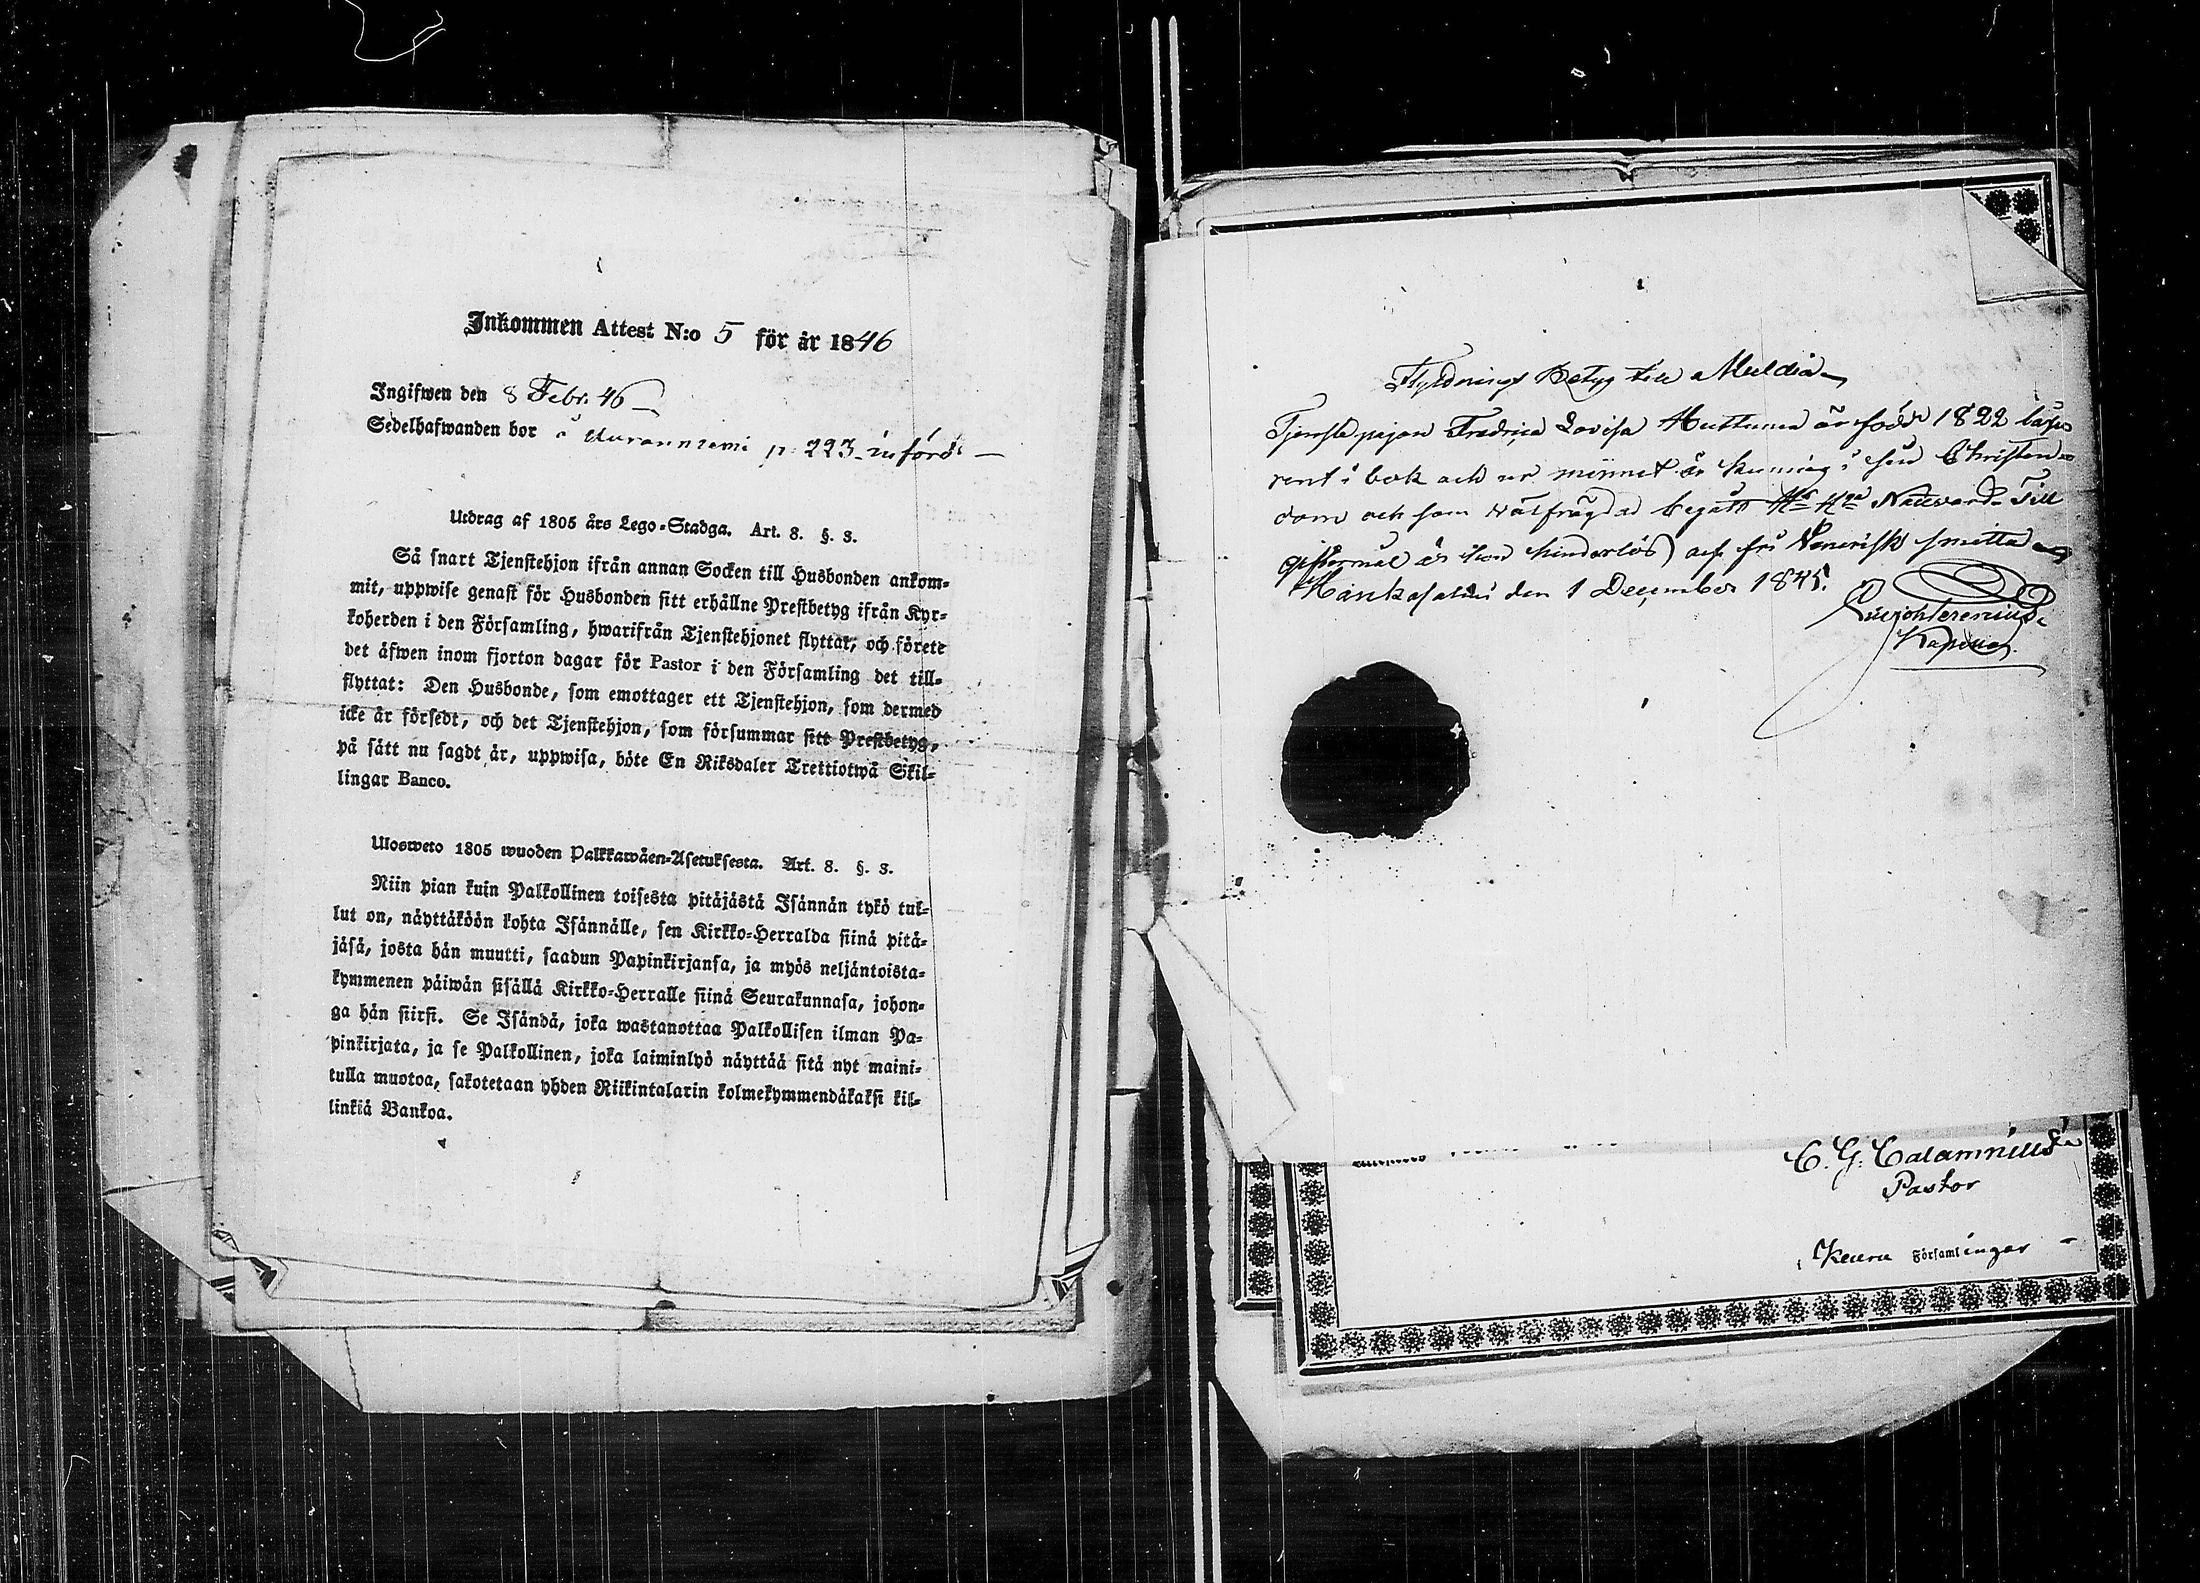 Inkommen Attest N:o 5 för år 1846
Ingifwen den 8 Febr. 46
Sedelhafwanden bor å Auranniemi p: 223 införd
Utdrag af 1805 års Lego-Stadga. Art. 8. §. 3.
Så snart Tjenstehjon ifrån annan Socken till Husbonden ankom-
mit, uppwise genast för Husbonden sitt erhållne Prestbetyg ifrån Kyr-
koherden i den Församling, hwarifrån Tjenstehjonet flyttat, och förete
det äfwen inom fjorton dagar för Pastor i den Församling det till-
flyttat: Den Husbonde, som emottager ett Tjenstehjon, som dermed
icke är försedt, och det Tjenstehjon, som försummar sitt Prestbetyg,
på sätt nu sagdt är, uppwisa, böte En Riksdaler Trettiotwå Skil-
lingar Banco.
Ulosweto 1805 wuoden Palkkawäen-Asetuksesta. Art. 8. §. 3.
Niin pian kuin Palkollinen toisesta pitäjästä Isännän tykö tul-
lut on, näyttäköön kohta Isännälle, sen Kirkko-Herralda siinä pitä-
jäsä, josta hän muutti, saadun Papinkirjansa, ja myös neljäntoista-
kymmenen päiwän sisällä Kirkko-Herralle siinä Seurakunnasa, johon-
ga hän siirsi. Se Isändä, joka wastanottaa Palkollisen ilman Pa-
pinkirjata, ja se Palkollinen, joka laiminlyö näyttää sitä nyt maini-
tulla muotoa, sakotetaan yhden Riikintalarin kolmekymmendäkaksi kil-
linkiä Bankoa.
Flyttnings Betyg till Muldia
Tjenste pigan Fredrica Lovisa Huttunen är född 1822 läser
rent i bok och ur minnet är kunnig i sin Christen-
dom och som wälfrägdad begått Hs Hga Nattward. Till
giftermål är hon hinderlös och fri Venerisk smitta
Hankasalmi den 1 December 1845.
Kapellan.
C. G. Calamnius
Pastor
Keuru Församlingar